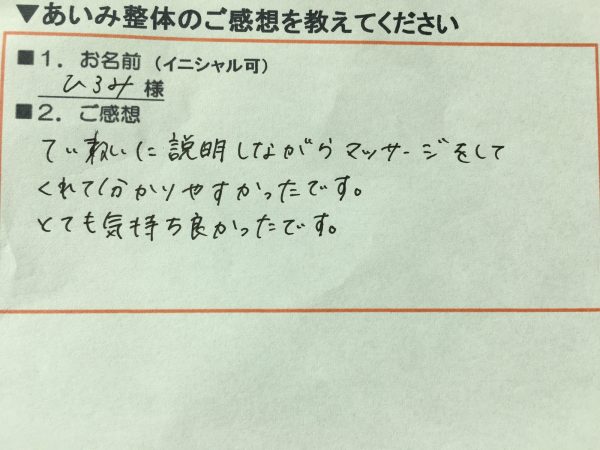 ▼あいみ整体のご感想を教えてください
■１．お名前（イニシャル可）
ひろみ 様
■２．ご感想
てい ねいに 説明しながら マッサージをして
くれて分かりやすかったです。
とても気持ち良かったです。